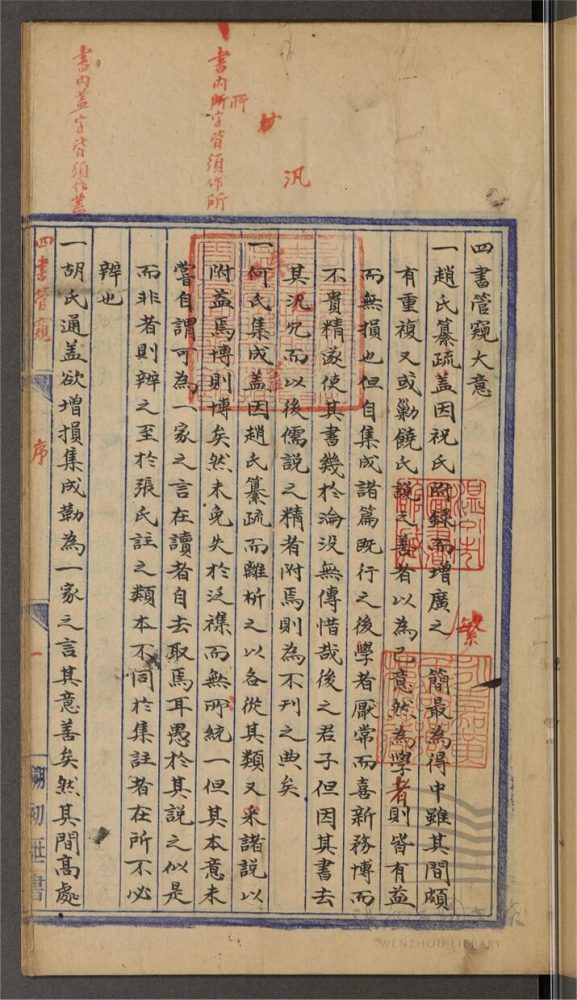 書内所字皆須作所
所
書内蓋字皆須作蓋
汎
繁
四書管窺大意
一趙氏纂疏蓋因祝氏附録而增廣之 簡最為得中雖其間頗
有重複又或勦饒氏説之善者以為己意然為學者則皆有益
而無損也但自集成諸篇既行之後學者厭常而喜新務博而
不貴精遂使其書幾於淪没無傳惜哉後之君子但因其書去
其汎冗而以後儒説之精者附焉則為不刊之典矣
一何氏集成蓋因趙氏纂疏而離析之以各從其類又采諸説以
附益焉博則博矣然未免失於泛襍而無所統一但其本意未
嘗自謂可為一家之言在讀者自去取焉耳愚於其説之似是
而非者則辨之至於張氏註之類本不同於集註者在所不必
辨也
一胡氏通蓋欲增損集成勒為一家之言其意善矣然其間髙處
四書管窺
序
一
WENZHOU LIBRARY